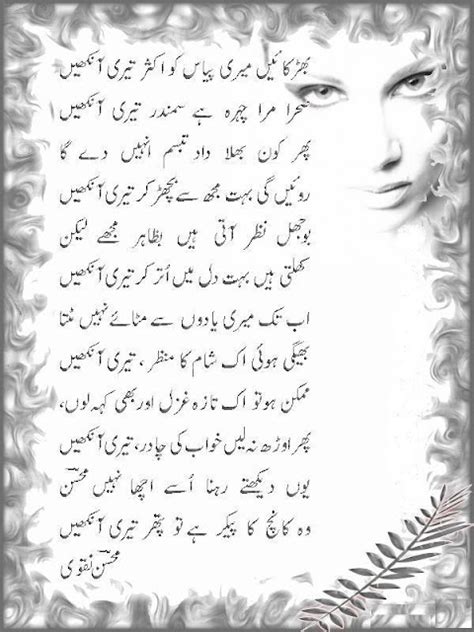 بھڑکائیں میری پیاس کو اکثر تیری آنکھیں
صحرا مرا چہرہ ہے سمندر تیری آنکھیں
پھر کون بھلا داد تبسم انہیں دے گا
روئیں گی بہت مجھ سے بچھڑ کر تیری آنکھیں
بوجھل نظر آتی ہیں بظاہر مجھے لیکن
کھلتی ہیں بہت دل میں اُتر کر تیری آنکھیں
اب تک میری یادوں سے مٹائے نہیں مٹتا
بھیگی ہوئی اک شام کا منظر ، تیری آنکھیں
ممکن ہو تو اک تازہ غزل اور بھی کہہ لوں،
پھر اوڑھ نہ لیں خواب کی چادر، تیری آنکھیں
یوں دیکھتے رہنا اُسے اچھا نہیں محسنؔ
وہ کانچ کا پیکر ہے تو پتھر تیری آنکھیں
محسن نقوی